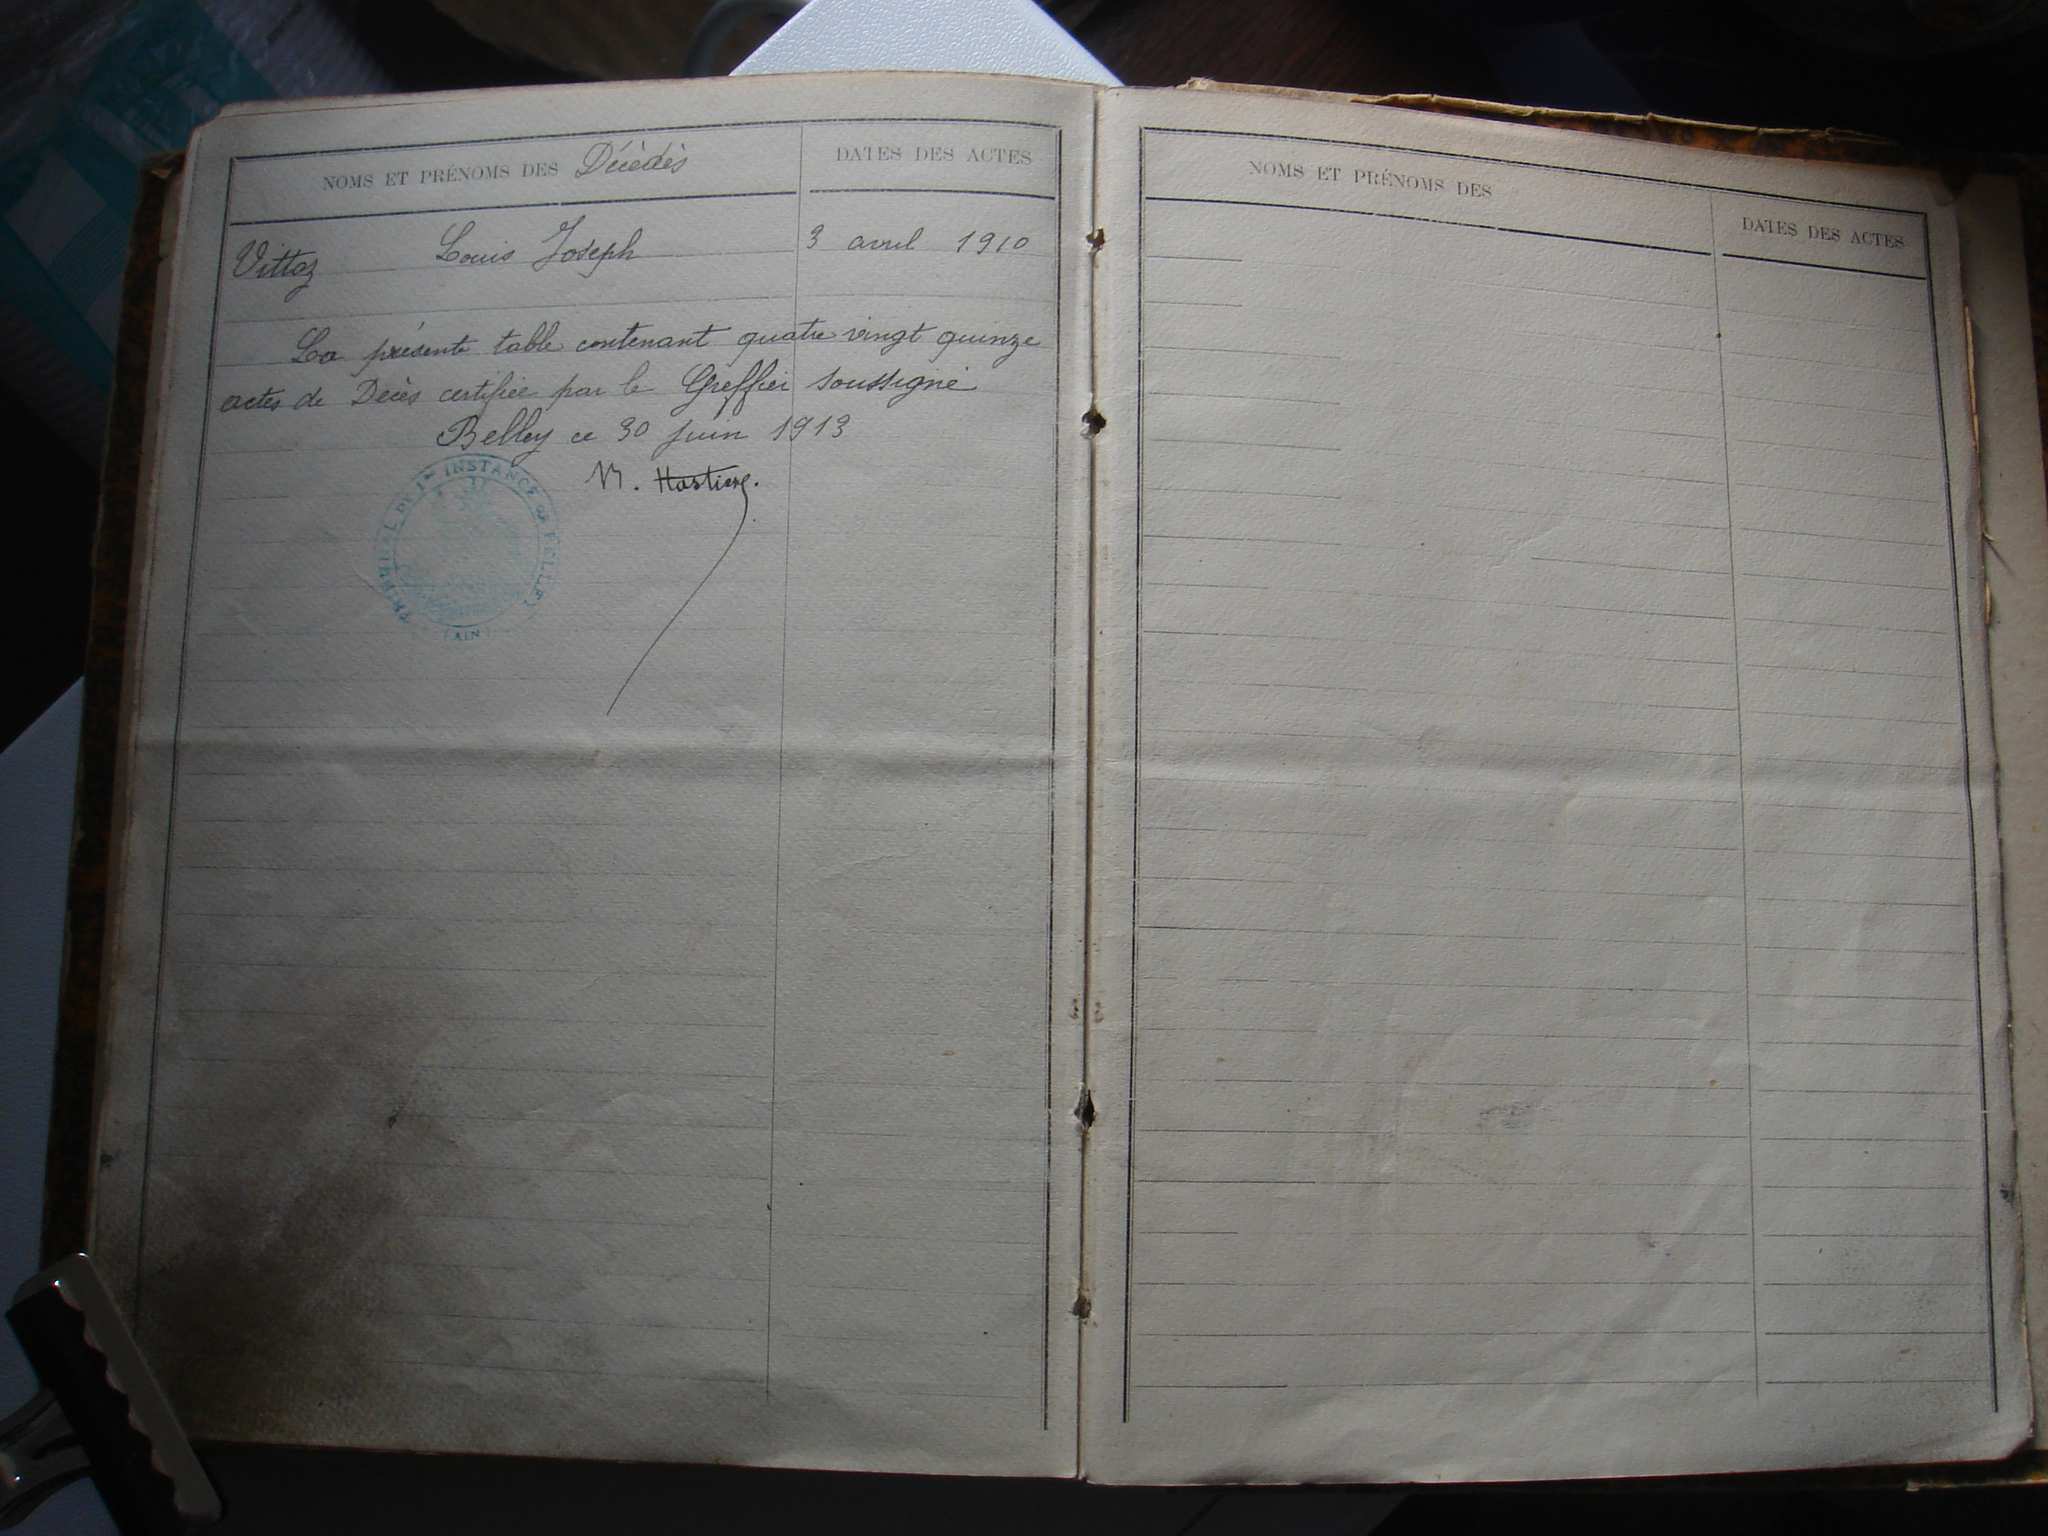 NOMS ET PRÉNOMS DES Décédés
DATES DES ACTES
Vittoz Louis Joseph 3 avril 1910
La présente table contenant quatre vingt quinze
actes de Décès certifiée par le Greffier soussigné
Belley ce 30 juin 1913
TRIBUNAL DE 1re INSTANCE BELLEY
(AIN)
NOMS ET PRÉNOMS DES
DATES DES ACTES